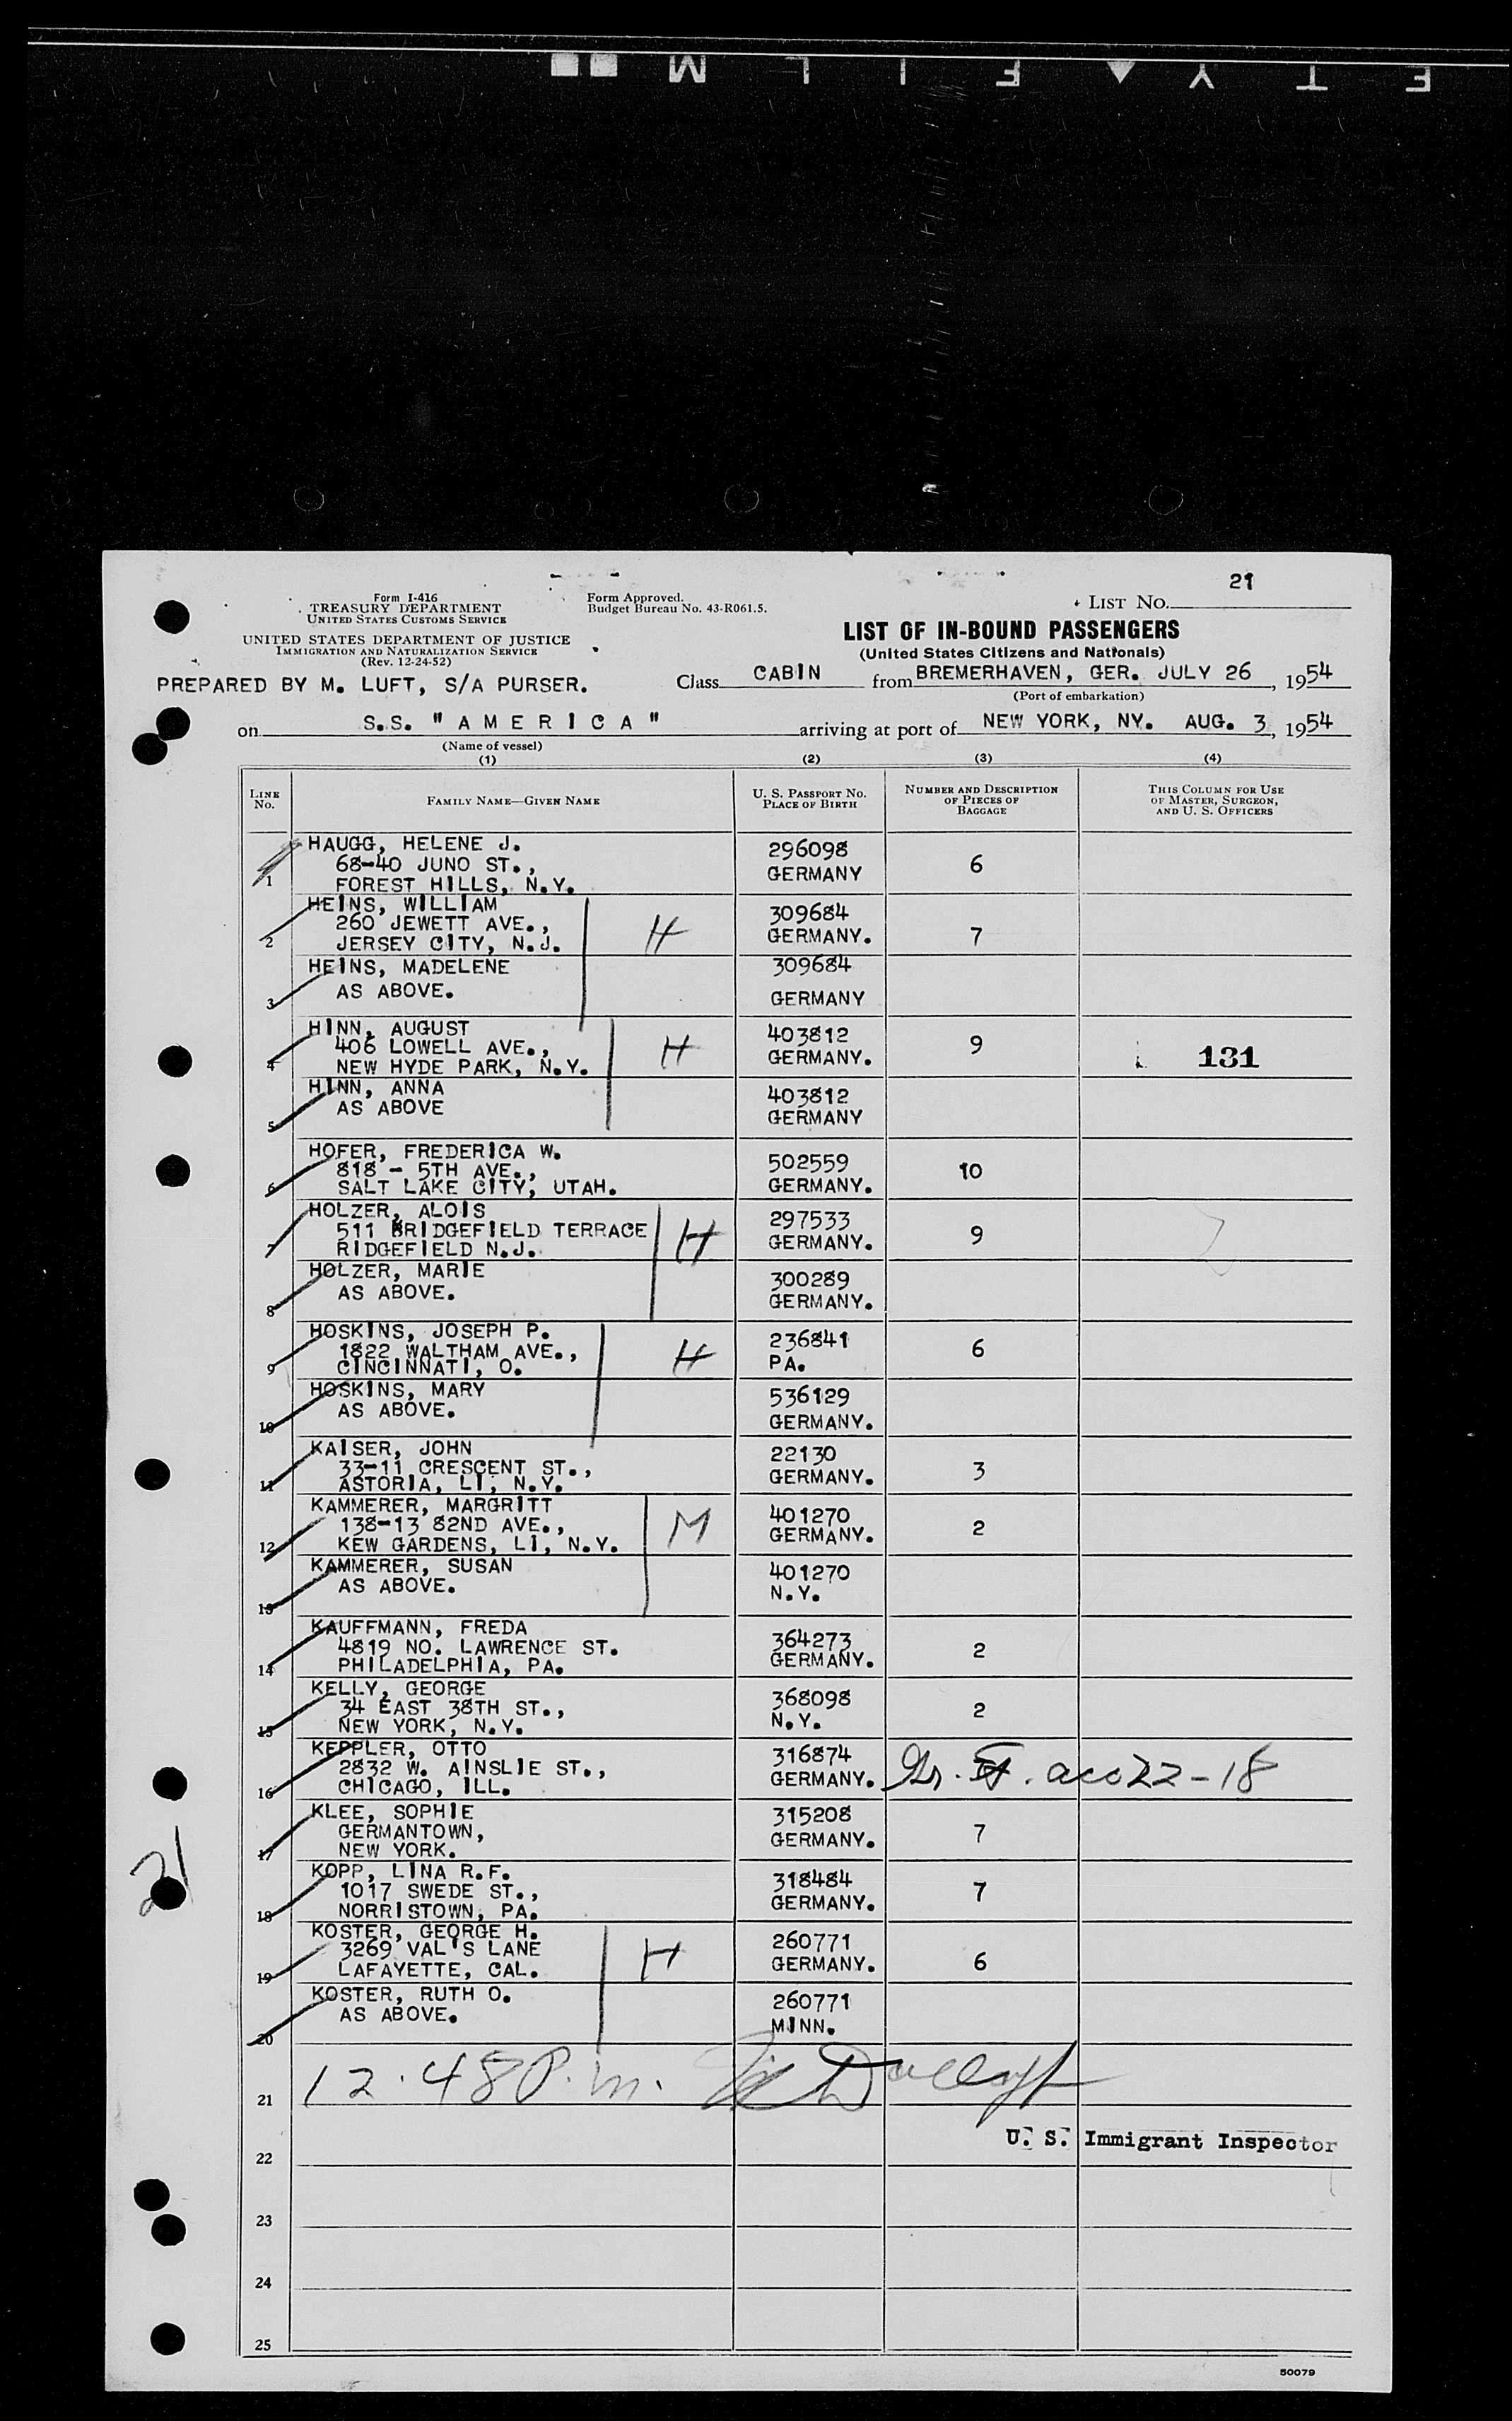 E T Y ▲ F I L M
21
Form I-416
TREASURY DEPARTMENT
UNITED STATES CUSTOMS SERVICE
Form Approved.
Budget Bureau No. 43-R061.5.
LIST No.
UNITED STATES DEPARTMENT OF JUSTICE
IMMIGRATION AND NATURALIZATION SERVICE
(Rev. 12-24-52)
LIST OF IN-BOUND PASSENGERS
(United States Citizens and Nationals)
PREPARED BY M. LUFT, S/A PURSER.
Class CABIN from BREMERHAVEN, GER. JULY 26, 1954
(Port of embarkation)
on S.S. "A M E R I C A" arriving at port of NEW YORK, NY. AUG. 3, 1954
(Name of vessel)
(1) (2) (3) (4)
LINE No. FAMILY NAME—GIVEN NAME U. S. PASSPORT No. PLACE OF BIRTH NUMBER AND DESCRIPTION OF PIECES OF BAGGAGE THIS COLUMN FOR USE OF MASTER, SURGEON, AND U. S. OFFICERS
HAUGG, HELENE J. 296098
68-40 JUNO ST., GERMANY 6
1 FOREST HILLS, N.Y.
HEINS, WILLIAM 309684
260 JEWETT AVE., H GERMANY. 7
2 JERSEY CITY, N.J.
HEINS, MADELENE 309684
3 AS ABOVE. GERMANY
HINN, AUGUST 403812
406 LOWELL AVE., H GERMANY. 9 131
4 NEW HYDE PARK, N.Y.
HINN, ANNA 403812
5 AS ABOVE GERMANY
HOFER, FREDERICA W. 502559
818 - 5TH AVE., GERMANY. 10
6 SALT LAKE CITY, UTAH.
HOLZER, ALOIS 297533
511 BRIDGEFIELD TERRACE H GERMANY. 9
7 RIDGEFIELD N.J.
HOLZER, MARIE 300289
8 AS ABOVE. GERMANY.
HOSKINS, JOSEPH P. 236841
1822 WALTHAM AVE., H PA. 6
9 CINCINNATI, O.
HOSKINS, MARY 536129
10 AS ABOVE. GERMANY.
KAISER, JOHN 22130
33-11 CRESCENT ST., GERMANY. 3
11 ASTORIA, LI, N.Y.
KAMMERER, MARGRITT 401270
138-13 82ND AVE., M GERMANY. 2
12 KEW GARDENS, LI, N.Y.
KAMMERER, SUSAN 401270
13 AS ABOVE. N.Y.
KAUFFMANN, FREDA 364273
4819 NO. LAWRENCE ST. GERMANY. 2
14 PHILADELPHIA, PA.
KELLY, GEORGE 368098
34 EAST 38TH ST., N.Y. 2
15 NEW YORK, N.Y.
KEPPLER, OTTO 316874
2832 W. AINSLIE ST., GERMANY. 22-18
16 CHICAGO, ILL.
KLEE, SOPHIE 315208
GERMANTOWN, GERMANY. 7
17 NEW YORK.
21
KOPP, LINA R.F. 318484
1017 SWEDE ST., GERMANY. 7
18 NORRISTOWN, PA.
KOSTER, GEORGE H. 260771
3269 VAL'S LANE H GERMANY. 6
19 LAFAYETTE, CAL.
KOSTER, RUTH O. 260771
20 AS ABOVE. MINN.
21 12.48 P.m.
U. S. Immigrant Inspector
22
23
24
25
50079